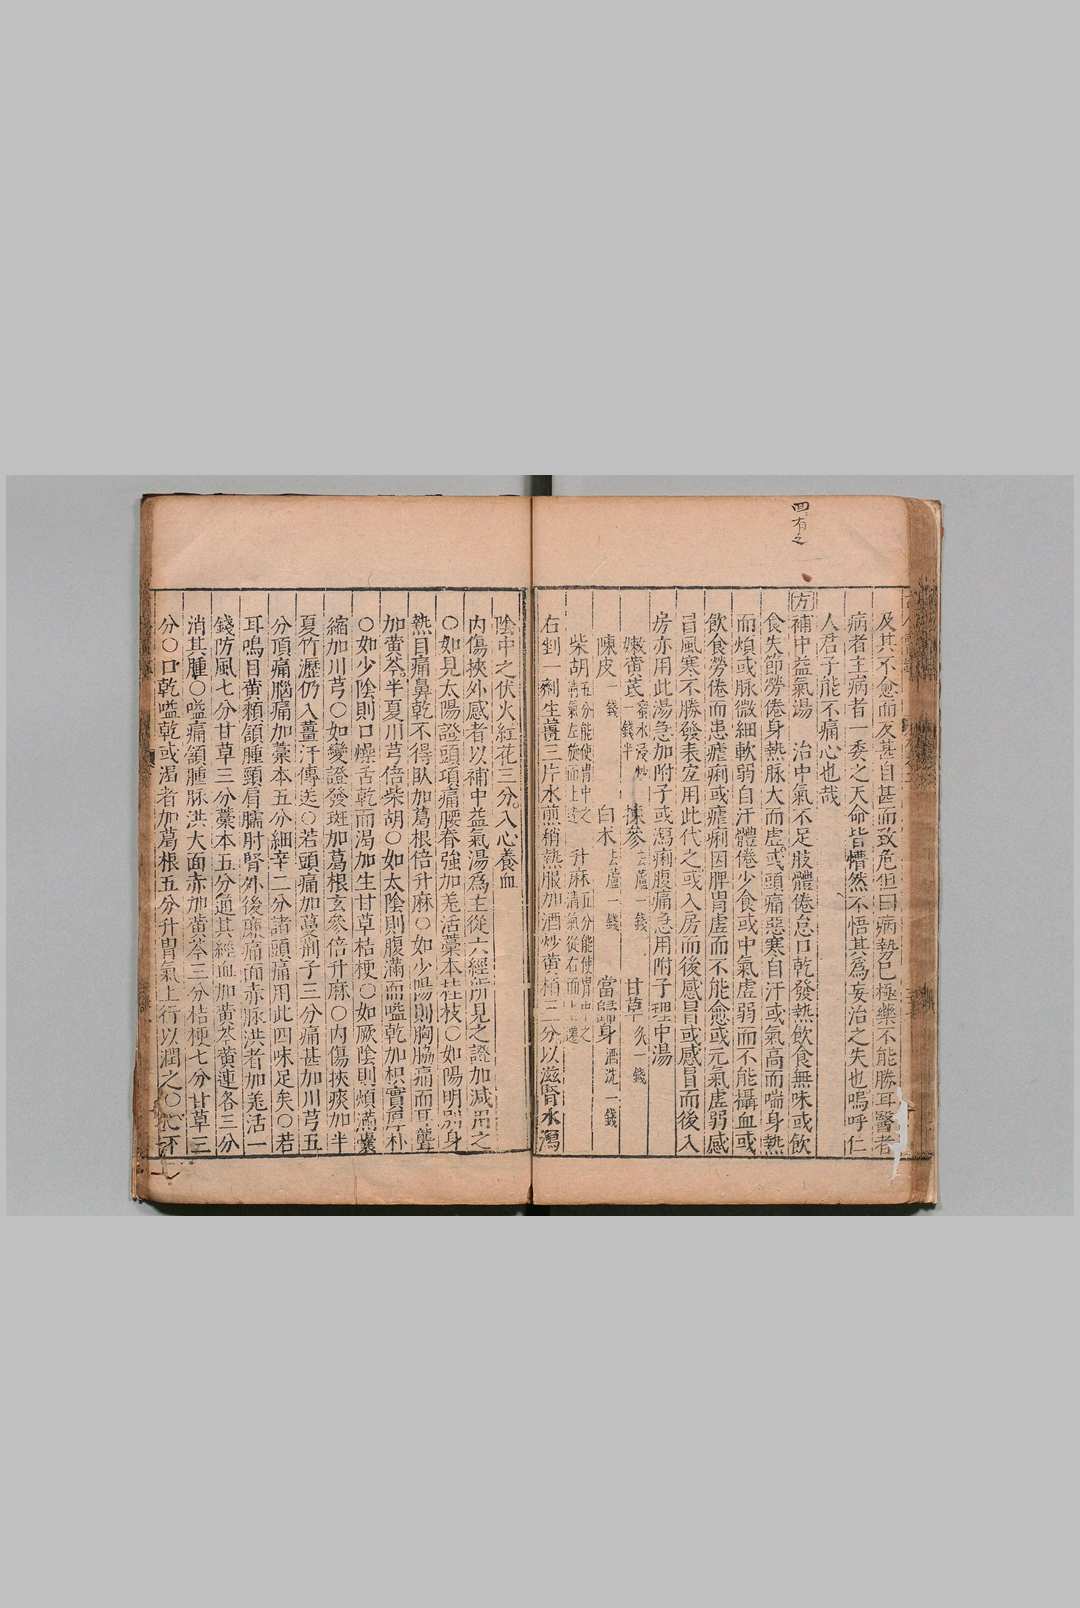 四有之
及其不愈而反甚自甚而致危但曰病勢已極藥不能勝耳醫者
病者主病者一委之天命皆懵然不悟其爲妄治之失也嗚呼仁
人君子能不痛心也哉
方補中益氣湯 治中氣不足肢體倦怠口乾發熱飲食無味或飲
食失節勞倦身熱脉大而虛或頭痛惡寒自汗或氣高而喘身熱
而煩或脉微細軟弱自汗體倦少食或中氣虛弱而不能攝血或
飲食勞倦而患瘧痢或瘧痢因脾胃虛而不能愈或元氣虛弱感
冒風寒不勝發表宜用此代之或入房而後感冒或感冒而後入
房亦用此湯急加附子或瀉痢腹痛急用附子理中湯
嫩黄芪蜜水浸炒一錢半 揀參去蘆一錢 甘草炙一錢
陳皮一錢 白朮去蘆一錢 當歸身酒洗一錢
柴胡五分能使胃中之清氣左旋而上達 升麻五分能使胃中之清氣從右而上遷
右剉一劑生薑三片水煎稍熱服加酒炒黄柏三分以滋腎水瀉
陰中之伏火紅花三分入心養血
内傷挾外感者以補中益氣湯爲主從六經所見之證加減用之
○如見太陽證頭項痛腰脊強加羌活藁本桂枝○如陽明則身
熱目痛鼻乾不得臥加葛根倍升麻○如少陽則胸脇痛而耳聾
加黄芩半夏川芎倍柴胡○如太陰則腹滿而嗌乾加枳實厚朴
○如少陰則口燥舌乾而渴加生甘草桔梗○如厥陰則煩滿囊
縮加川芎○如變證發斑加葛根玄參倍升麻○内傷挾痰加半
夏竹瀝仍入薑汁傳送○若頭痛加蔓荊子三分痛甚加川芎五
分頂痛腦痛加藁本五分細辛二分諸頭痛用此四味足矣○若
耳鳴目黄頰頷腫頸肩臑肘臂外後廉痛面赤脉洪者加羌活一
錢防風七分甘草三分藁本五分通其經血加黄芩黄連各三分
消其腫○嗌痛頷腫脉洪大面赤加黄芩三分桔梗七分甘草三
分○口乾嗌乾或渴者加葛根五分升胃氣上行以潤之○心下